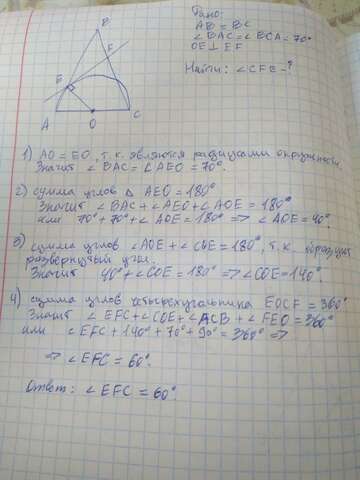 B
Дано:
AB = BC
∠BAC = ∠BCA = 70°
OE ⊥ EF
Найти: ∠CFE - ?
F
E
A
O
C
1) AO = EO, т.к. являются радиусами окружности
Значит ∠BAC = ∠AEO = 70°.
2) сумма углов △ AEO = 180°
Значит ∠BAC + ∠AEO + ∠AOE = 180°
или 70° + 70° + ∠AOE = 180° => ∠AOE = 40°.
3) сумма углов ∠AOE + ∠COE = 180°, т.к. образуют
развёрнутый угол.
Значит 40° + ∠COE = 180° => ∠COE = 140°.
4) сумма углов четырехугольника EOCF = 360°
Значит ∠EFC + ∠COE + ∠ACB + ∠FEO = 360°
или ∠EFC + 140° + 70° + 90° = 360° =>
=> ∠EFC = 60°.
Ответ: ∠EFC = 60°.